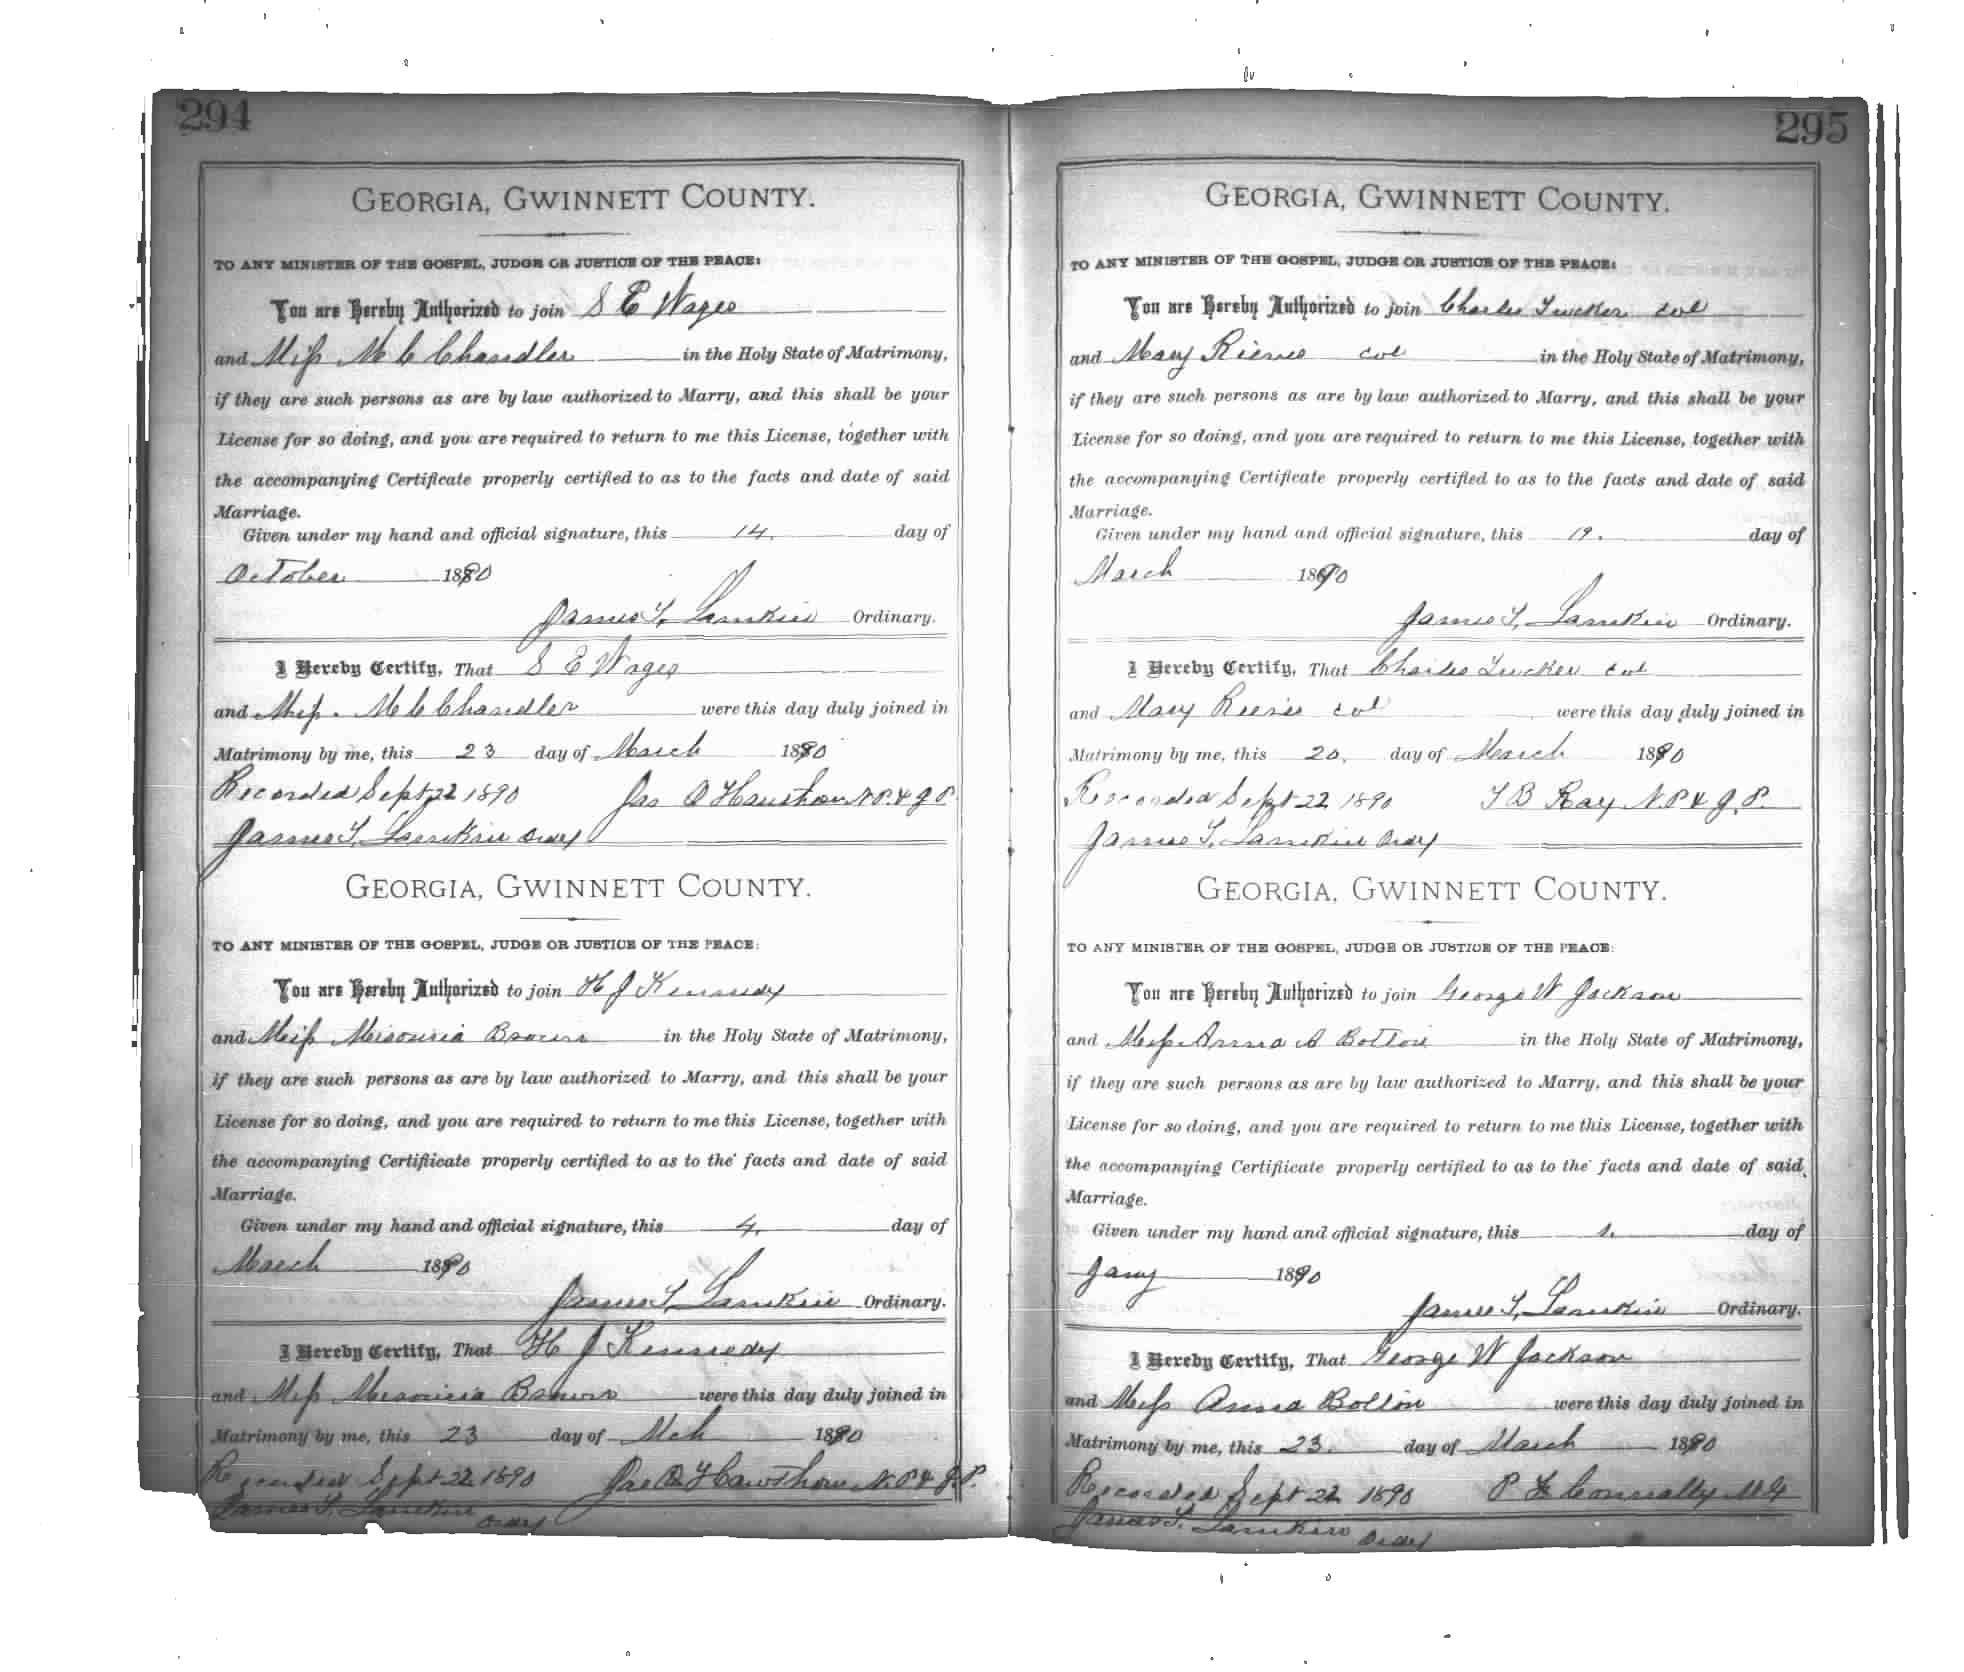 294
GEORGIA, GWINNETT COUNTY.
TO ANY MINISTER OF THE GOSPEL, JUDGE OR JUSTICE OF THE PEACE:
You are Hereby Authorized to join S E Wages
and Miss M C Chandler in the Holy State of Matrimony,
if they are such persons as are by law authorized to Marry, and this shall be your
License for so doing, and you are required to return to me this License, together with
the accompanying Certificate properly certified to as to the facts and date of said
Marriage.
Given under my hand and official signature, this 14. day of
October 1890
James T. Lamkin Ordinary.
I Hereby Certify, That S E Wages
and Miss. M C Chandler were this day duly joined in
Matrimony by me, this 23 day of March 1890
Recorded Sept 22 1890 Jas O Hawthorn N.P. & J P.
James T. Lamkin Ordy
GEORGIA, GWINNETT COUNTY.
TO ANY MINISTER OF THE GOSPEL, JUDGE OR JUSTICE OF THE PEACE:
You are Hereby Authorized to join H J Kennedy
and Miss Misouria Brown in the Holy State of Matrimony,
if they are such persons as are by law authorized to Marry, and this shall be your
License for so doing, and you are required to return to me this License, together with
the accompanying Certifiicate properly certified to as to the facts and date of said
Marriage.
Given under my hand and official signature, this 4. day of
March 1890
James T. Lamkin Ordinary.
I Hereby Certify, That H J Kennedy
and Miss Misouria Brown were this day duly joined in
Matrimony by me, this 23 day of Mch 1890
Recorded Sept 22 1890 Jas O Hawthorn N.P. & J.P.
James T. Lamkin Ordy
295
GEORGIA, GWINNETT COUNTY.
TO ANY MINISTER OF THE GOSPEL, JUDGE OR JUSTICE OF THE PEACE:
You are Hereby Authorized to join Charles Tucker col
and Mary Rieves col in the Holy State of Matrimony,
if they are such persons as are by law authorized to Marry, and this shall be your
License for so doing, and you are required to return to me this License, together with
the accompanying Certificate properly certified to as to the facts and date of said
Marriage.
Given under my hand and official signature, this 19. day of
March 1890
James T. Lamkin Ordinary.
I Hereby Certify, That Charles Tucker col
and Mary Rieves col were this day duly joined in
Matrimony by me, this 20. day of March 1890
Recorded Sept 22 1890 T B Ray N.P & J.P.
James T. Lamkin Ordy
GEORGIA, GWINNETT COUNTY.
TO ANY MINISTER OF THE GOSPEL, JUDGE OR JUSTICE OF THE PEACE:
You are Hereby Authorized to join George W Jackson
and Miss Anna A Bolton in the Holy State of Matrimony,
if they are such persons as are by law authorized to Marry, and this shall be your
License for so doing, and you are required to return to me this License, together with
the accompanying Certifiicate properly certified to as to the facts and date of said
Marriage.
Given under my hand and official signature, this 1. day of
Jany 1890
James T. Lamkin Ordinary.
I Hereby Certify, That George W Jackson
and Miss Anna Bolton were this day duly joined in
Matrimony by me, this 23. day of March 1890
Recorded Sept 22 1890 P F Connally M G
James T. Lamkin Ordy